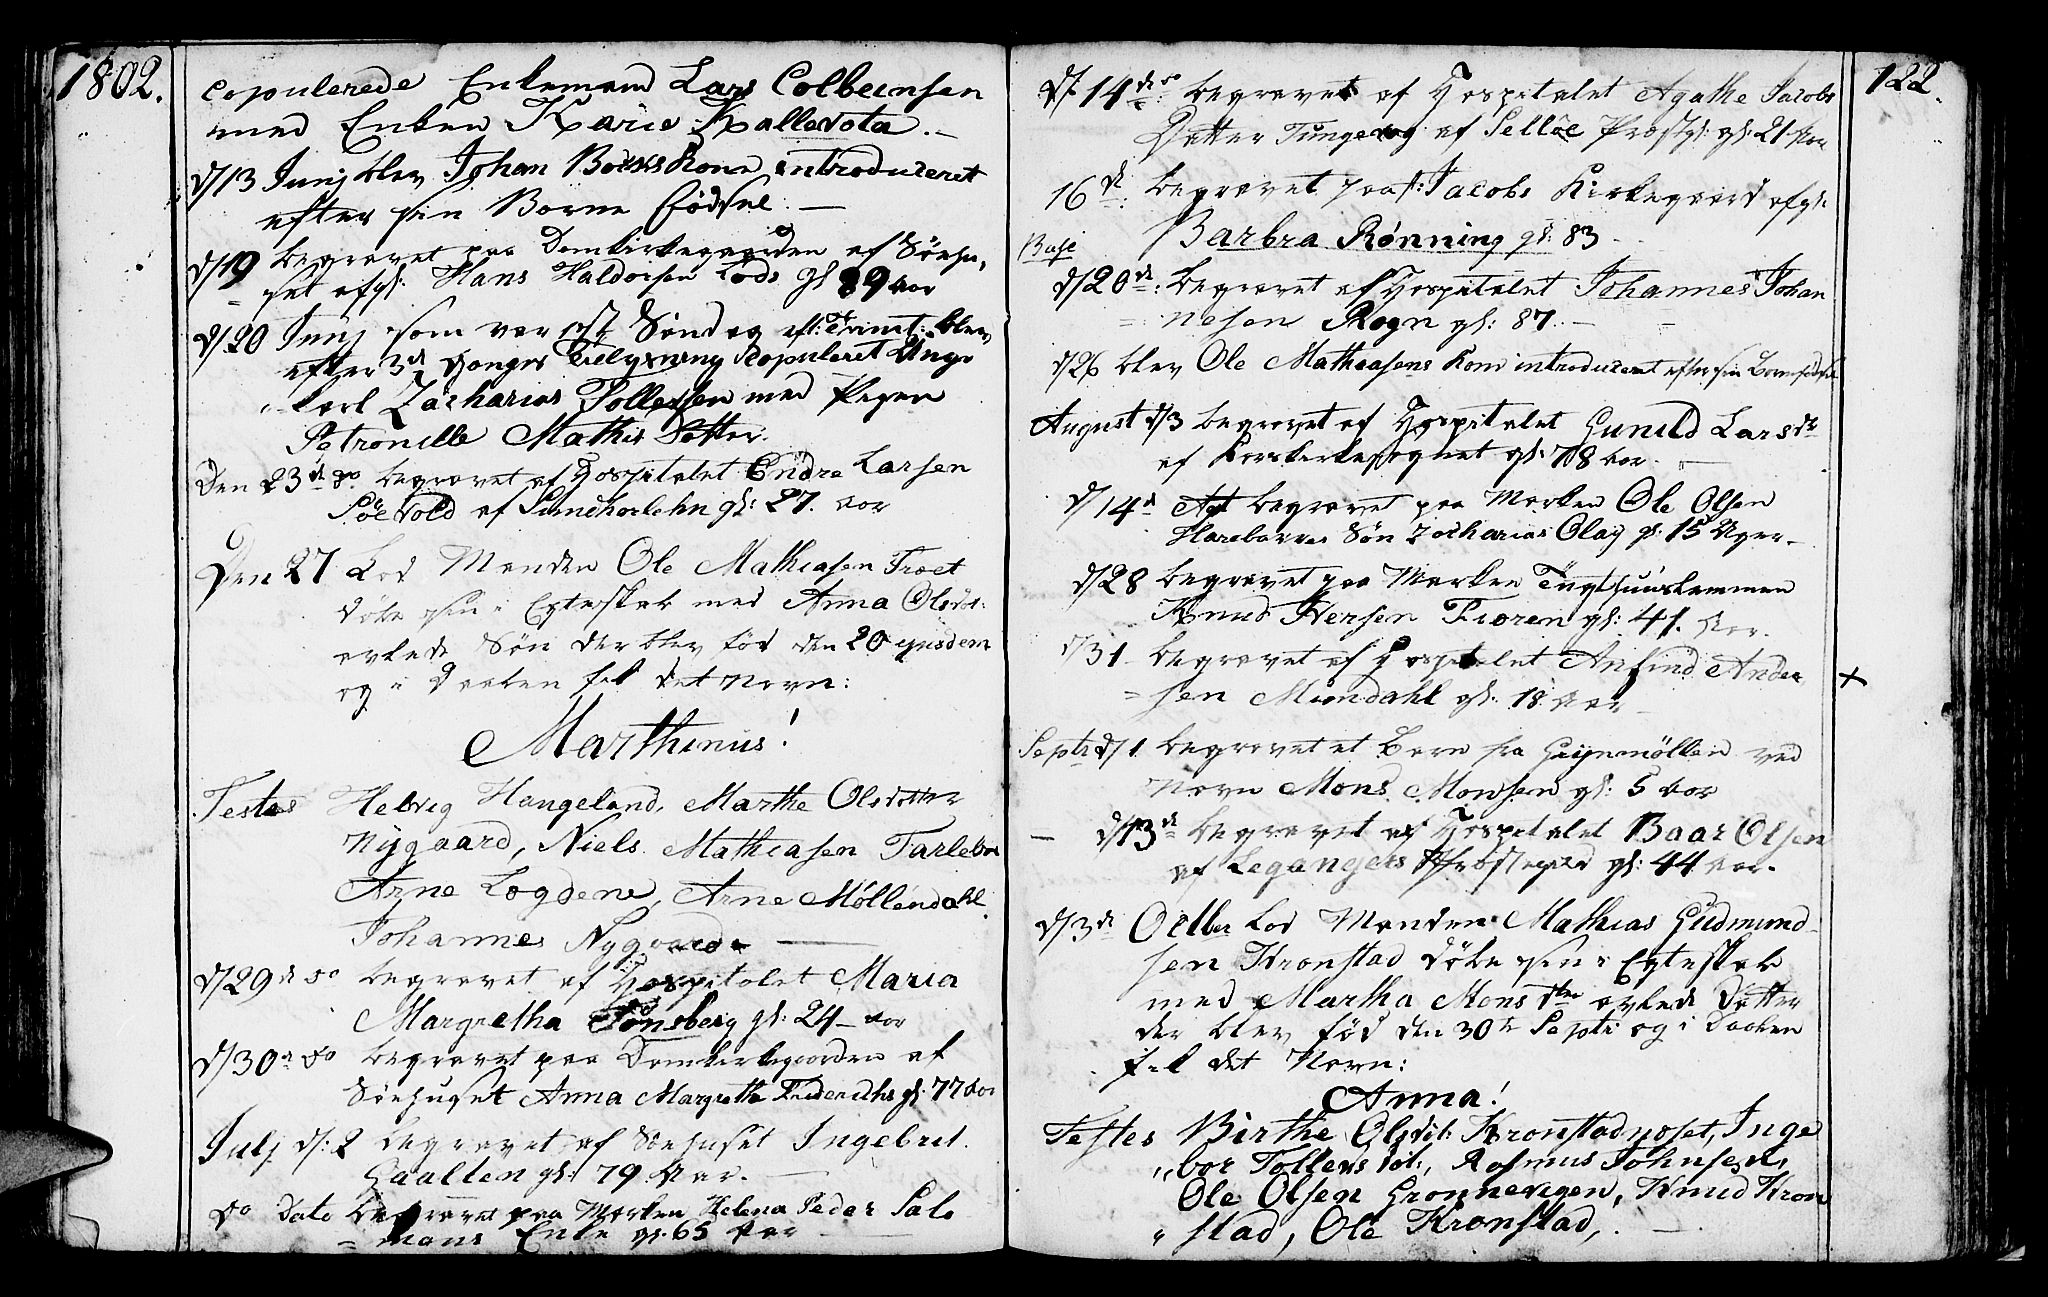 1802.
copulerede Enkemand Lars Colbeinsen
med Enken Kari Kallevota.
d/13 Junj blev Johan Kone introduceret
efter sin Borne födsel
d/19 begravet paa Domkirkegaarden af Söehu-
set afgl: Hans Haldorsen Lods gl 89 aar
d/20 Junj som var Söndag eft: Trinit: blev
efter 3d Ganger Tillysning Kopuleret Unge
karl Zacharias Tollefsen med Pigen
Petronille Mathis Datter.
Den 23d do begravet af Hospitalet Endre Larsen
af Sundhorlehn gl: 27. aar
Den 27 Lod Manden Ole Mathiasen Troet
döbe sin i Egteskab med Anna Olsdot:
avlede Sön der blev föd den 20 ejusdem
og i Daaben fik det Navn:
Marthinus!
Testes Helvig Haugeland, Marthe Olsdotter
Nygaard, Niels Mathiasen Tarlebö
Arne Lögdene, Arne Möllendahl
Johannes Nygaard
d/29d do begravet af Hospitalet Maria
Margretha Tönsberg gl: 24 aar
d/30d do begravet paa Domkirkegaarden af
Söehuset Anna Margrethe Friderichs gl: 77 aar
Julj d: 2 begravet af Söehuset Ingebret
Gaalten gl: 79 aar.
do Dato begravet paa Marken Helena Peder Salo
= mons Enke gl. 65 aar
122.
d/14d do begravet af Hospitalet Agathe Jacobs
Datter Tungevog af Selløe Præstgl: gl: 21 Aar
16d begravet paa st: Jacobs Kirkegaard afgl:
Barbra Rønning gl: 83
d/20d: begravet af Hospitalet Johannes Johan
= nesen Rogn gl: 87.
d/26 blev Ole Mathiasens Kone introduceret efter sin Barnefödsel
August d/3 begravet af Hospitalet Gunild Larsdr
af Korskirkesognet gl: 78 aar
d/14d begravet paa Marken Ole Olsen
Harebarres Sön Zacharias Olaj gl: 15 Uger
d/28 begravet paa Marken
Knud Iversen Fioren gl: 41. Aar.
d/31 begravet af Hospitalet Anfind Ander
= sen Mundahl gl: 18 aar
x
Septr d/1 begravet et Barn fra ved
Navn Mons Monsen gl: 5 aar
d/13d begravet af Hospitalet Baar Olsen
af Legangers Præstegield gl: 44 aar.
d/3d Octbr Lod Manden Mathias Gudmund
sen Kronstad döbe sin i Egteskab
med Martha Monsdtr avlede Datter
der blev föd den 30te Septr og i Daaben
fik det Navn:
Anna!
Testes Birthe Olsdt: Kronstadposet, Inge
„bor Tollevsdot:, Rasmus Johnsen,
Ole Olsen Gronnevigen, Knud Kron
„stad, Ole Kronstad,